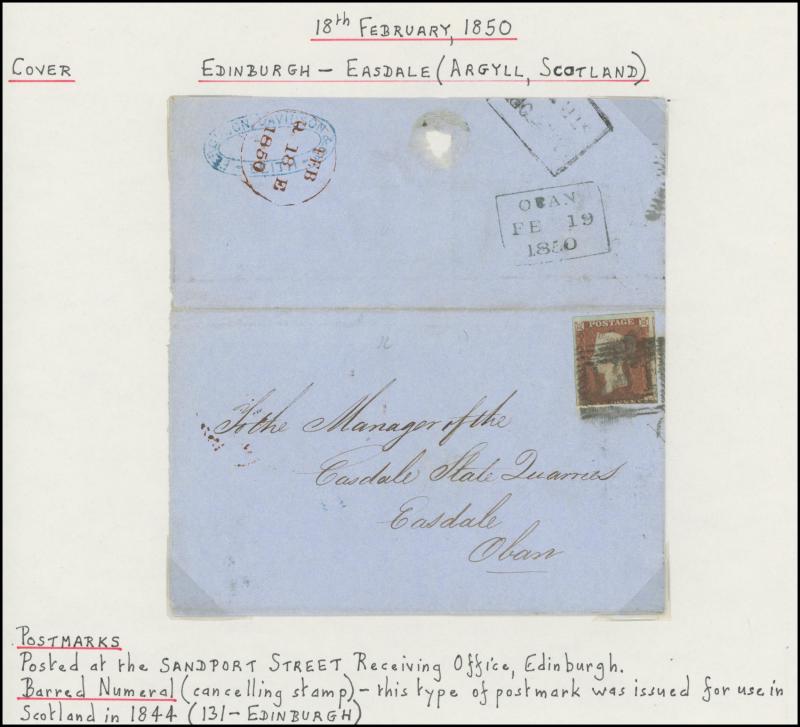 18th February, 1850
Cover
Edinburgh - Easdale (Argyll, Scotland)
DAVIDSON &
LEITH
FEB
R 18 E
1850
OBAN
FE 19
1850
POSTAGE
To the Manager of the
Easdale Slate Quarries
Easdale
Oban
Postmarks
Posted at the SANDPORT STREET Receiving Office, Edinburgh.
Barred Numeral (cancelling stamp) - this type of postmark was issued for use in
Scotland in 1844 (131 - EDINBURGH)